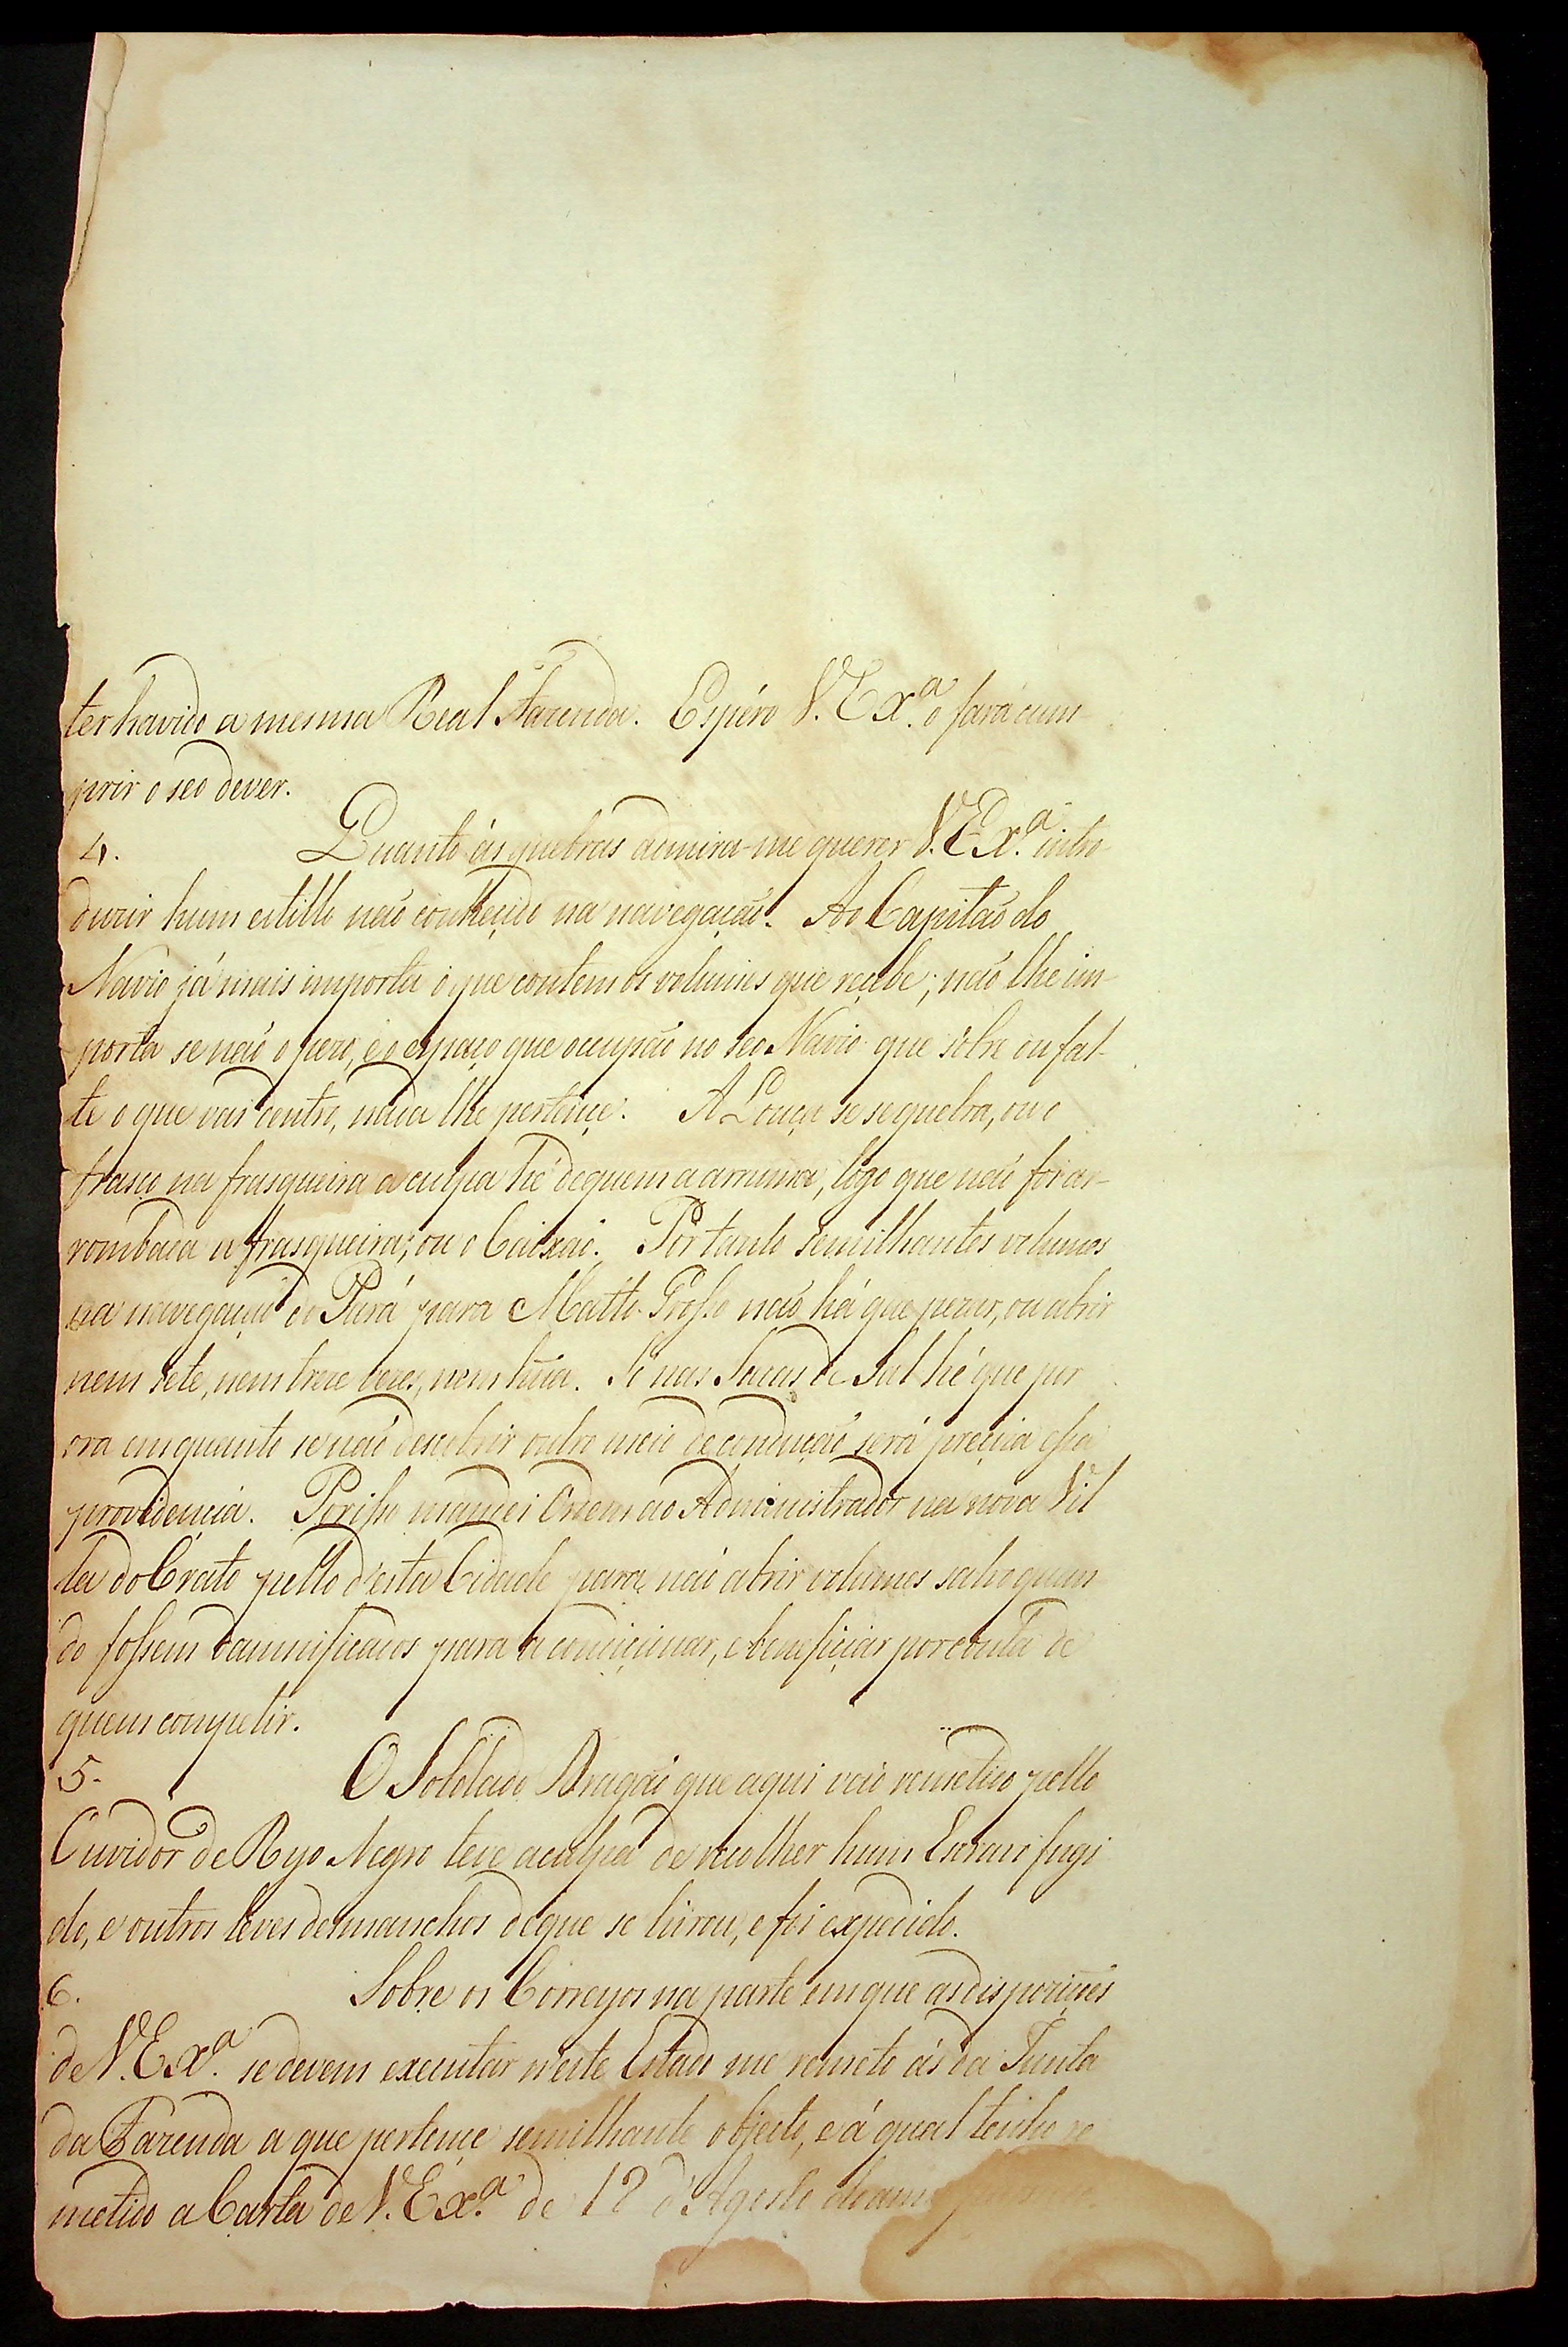 ter havido a mesma Real Fazenda. Espéro V. Exª. o fará cum-
prir o seo dever.
4. Quanto ás quebras admira-me querer V. Exª. intro-
duzir hum estillo naõ conheçido na navegaçaõ. Ao Capitaõ do
Navio já mais importa o que contem os volumes que reçebe; naõ lhe im-
porta se naõ o pezo, e o espaço que occupaõ no seo Navio que sobre ou fal-
te o que vai dentro, nada lhe pertençe. A Louça se se quebra, ou o
frasco na frasqueira a culpa hé de quem a arruma, logo que naõ for ar-
rombada a frasqueira, ou o Caixaõ. Por tanto semilhantes volumes
na navegaçaõ do Pará para Matto-Grosso naõ há que pezar, ou abrir
nem sete, nem treze vezes, nem huã. Só nas Sacas de Sal hé que por
ora em quanto se naõ descobrir outro meio de conduçaõ será preçiza essa
providençia. Porisso mandei Ordem ao Administrador na nova Vil
la do Crato pello d'esta Cidade para naõ abrir volumes salvo quan
do fossem damnificados para acondiçionar, e benefiçiar por conta de
quem competir.
5. O Soldado Dragaõ que aqui veio remetido pello
Ouvidor de Ryo Negro teve a culpa de recolher hum Escravo fugi
do, e outros leves desmanchos de que se livrou, e foi expedido.
6. Sobre os Correyos na parte em que as dispoziçoẽs
de V. Exª. se devem executar n'este Estado me remeto ás da Junta
da Fazenda a que pertençe semilhante objecto, e á qual tenho re
metido a Carta de V. Exª. de 12 d'Agosto do